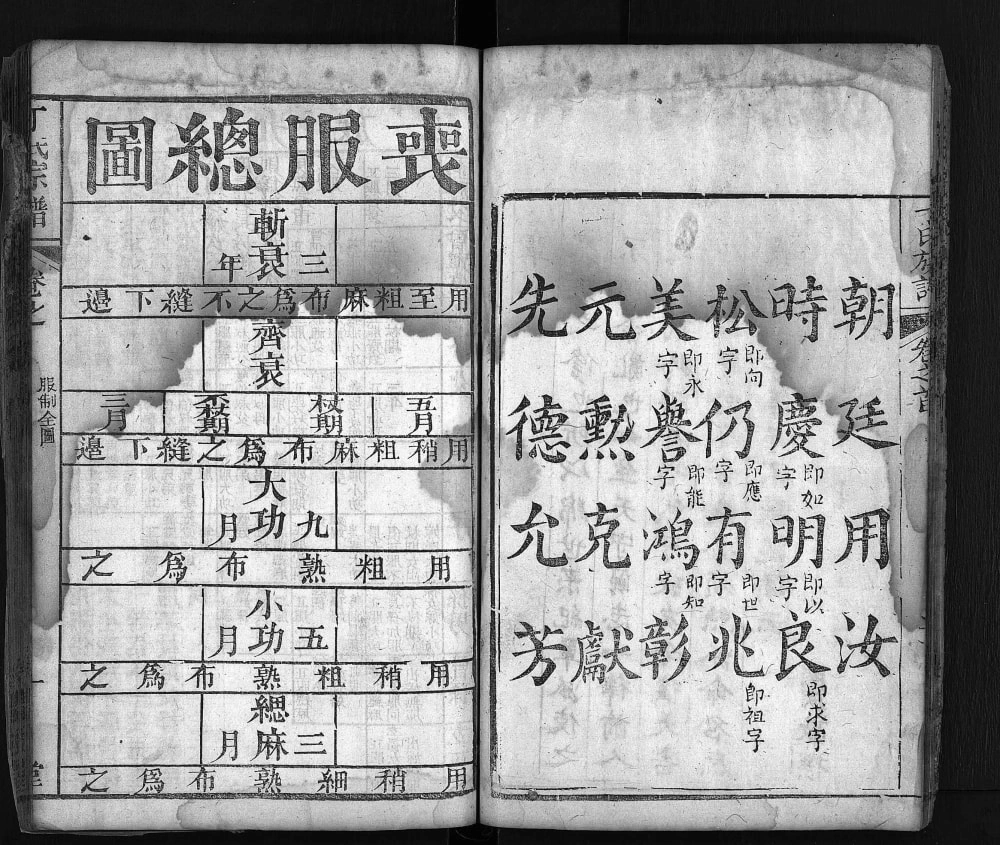 丁氏族譜
卷之首
朝廷用汝
時慶即如字明即以字良即求字
松即向字仍即應字有即世字兆即祖字
美即永字譽即能字鴻即知字彰
元勲克獻
先德允芳
喪服總圖
斬衰三年
用至粗麻布爲之不縫下邉
齊衰
五月
杖期
不杖期
三月
用稍粗麻布爲之縫下邉
大功九月
用粗熟布爲之
小功五月
用稍粗熟布爲之
緦麻三月
用稍細熟布爲之
丁氏宗譜
卷之
服制全圖
一
堂